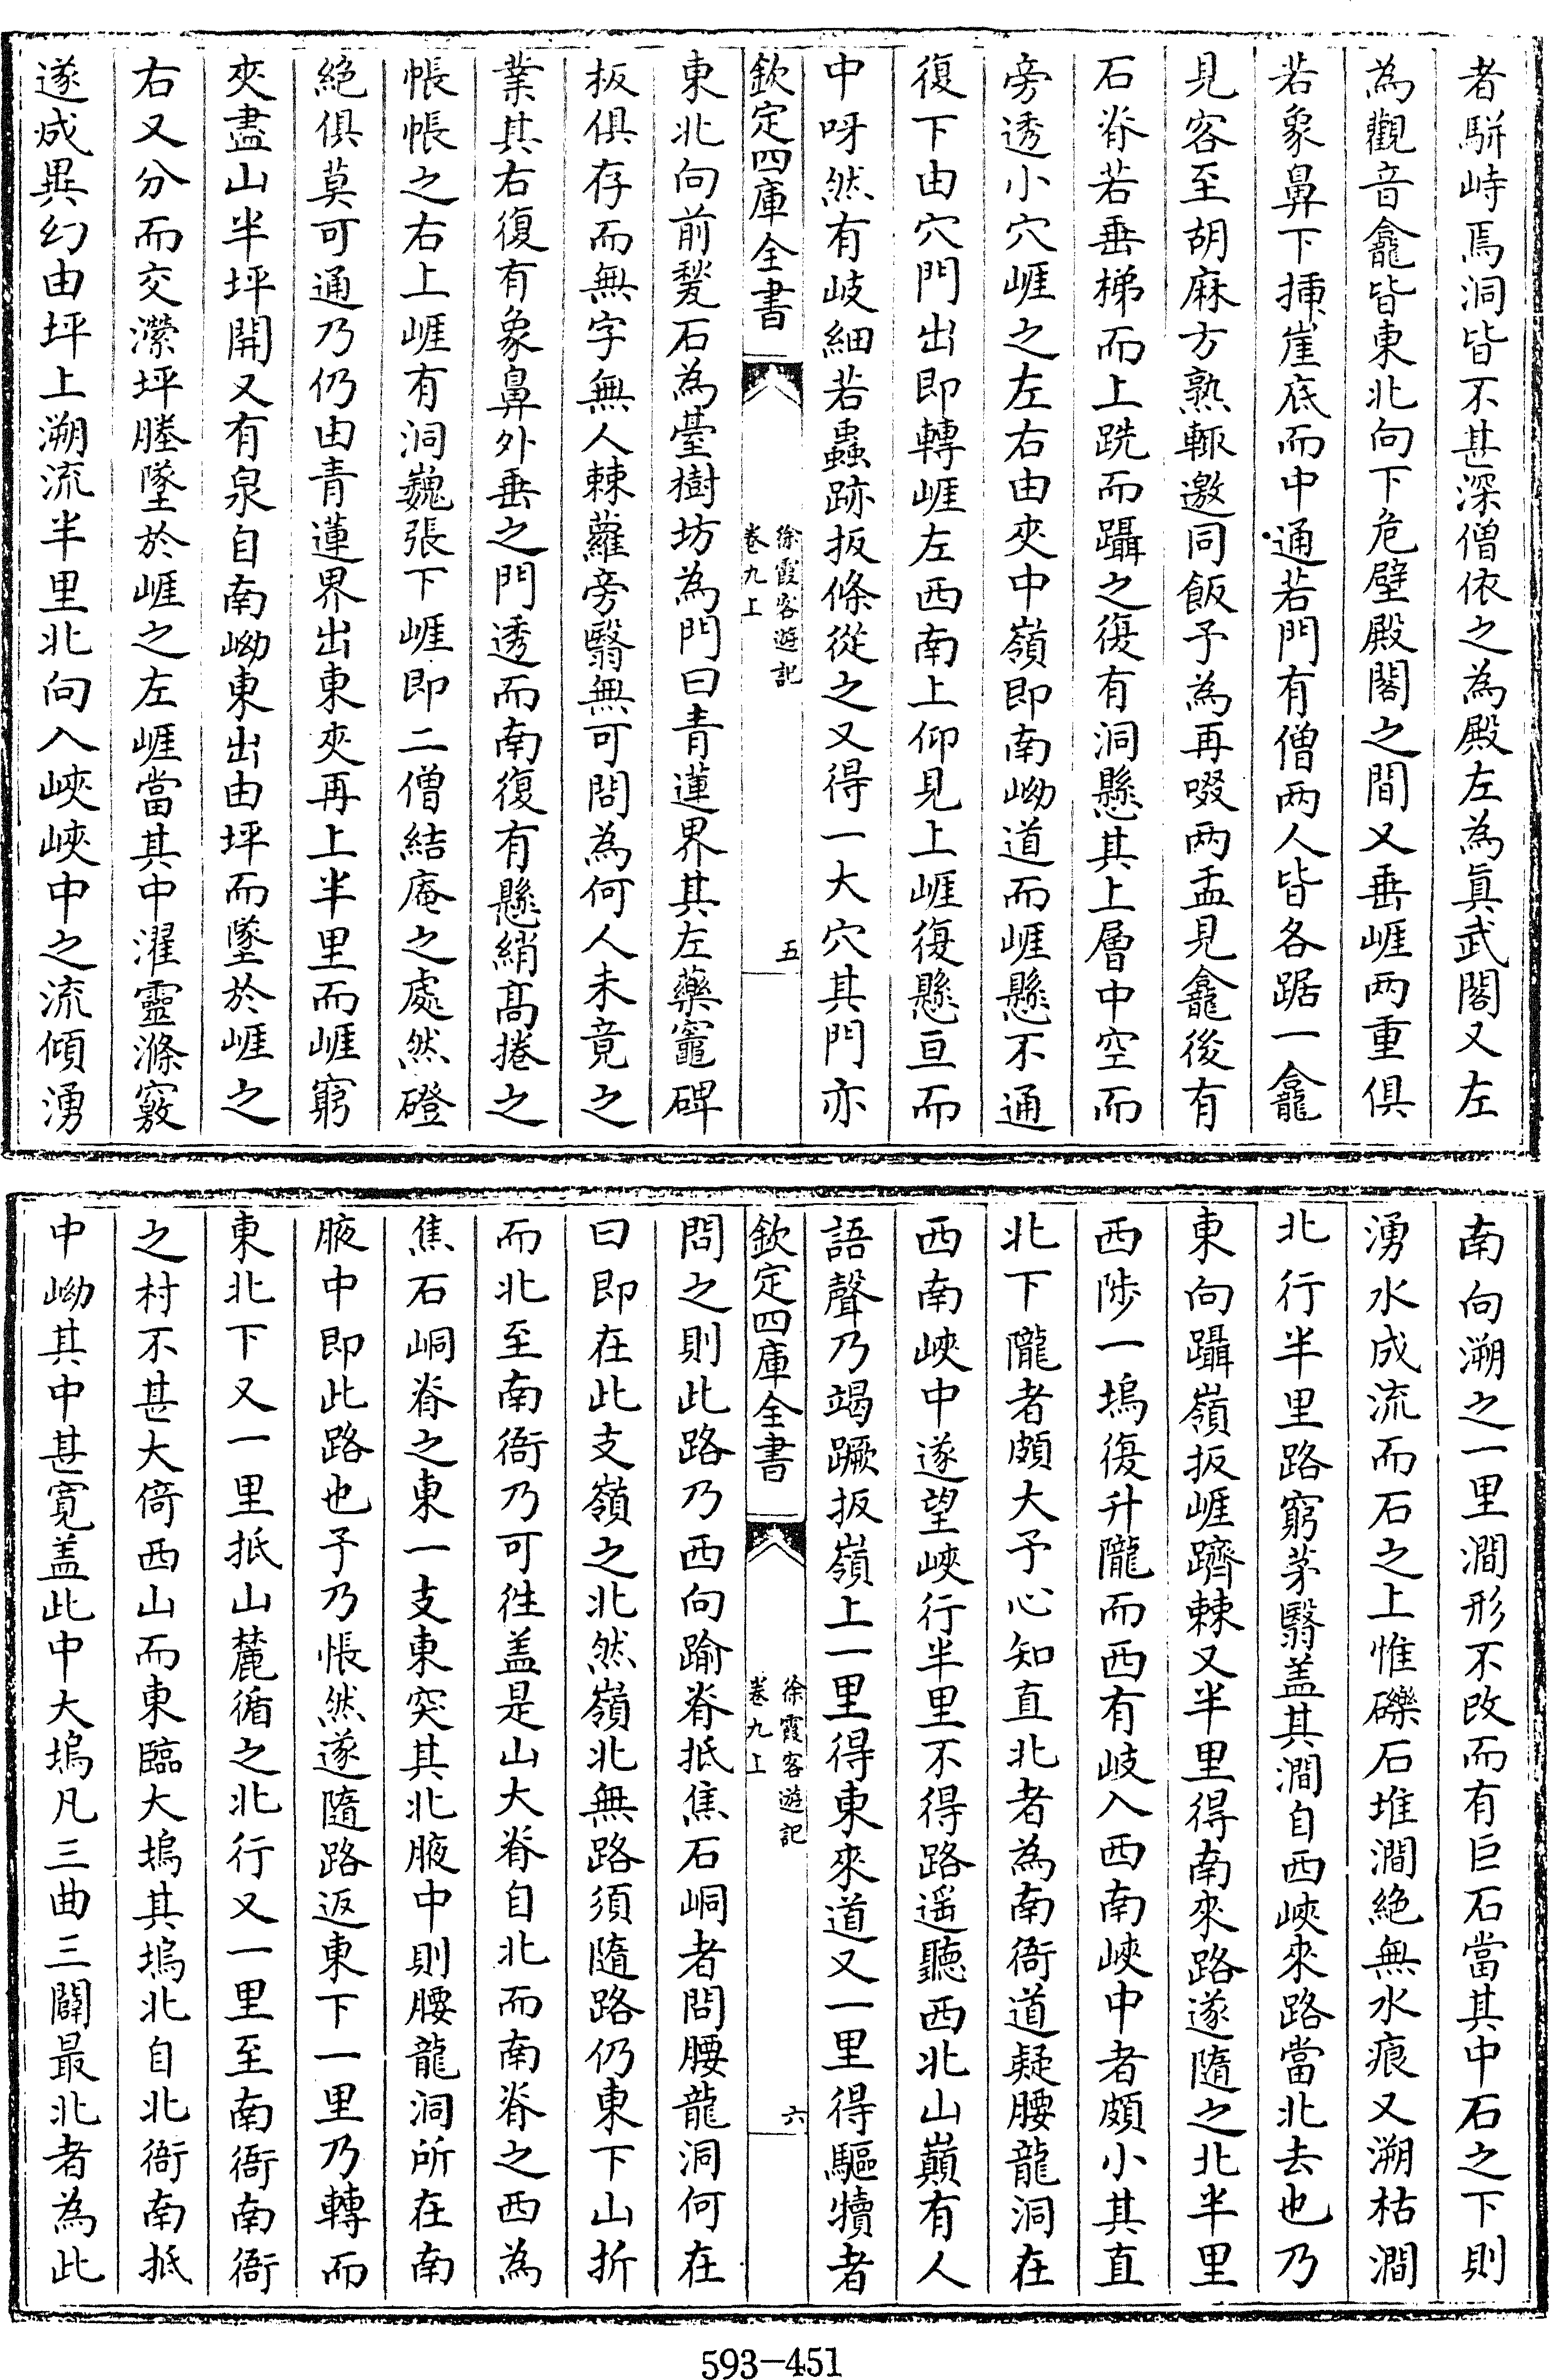 者駢峙焉洞皆不甚深僧依之為殿左為真武閣又左
為觀音龕皆東北向下危壁殿閣之間又垂崕兩重俱
若象鼻下揷崖底而中通若門有僧两人皆各踞一龕
見客至胡麻方熟輙邀同飯予為再啜两盂見龕後有
石脊若垂梯而上跣而躡之復有洞懸其上層中空而
旁透小穴崕之左右由夾中嶺即南坳道而崕懸不通
復下由穴門出即轉崕左西南上仰見上崕復懸亘而
中呀然有岐細若蟲跡扳條從之又得一大穴其門亦
欽定四庫全書
徐霞客遊記
卷九上
五
東北向前甃石為臺樹坊為門曰青蓮界其左藥竈碑
板俱存而無字無人棘蘿旁翳無可問為何人未竟之
業其右復有象鼻外垂之門透而南復有懸綃髙捲之
帳帳之右上崕有洞巍張下崕即二僧結庵之處然磴
絶俱莫可通乃仍由青蓮界出東夾再上半里而崕窮
夾盡山半坪開又有泉自南坳東出由坪而墜於崕之
右又分而交瀠坪塍墜於崕之左崕當其中濯靈滌竅
遂成異幻由坪上溯流半里北向入峽峽中之流傾湧
南向溯之一里澗形不改而有巨石當其中石之下則
湧水成流而石之上惟礫石堆澗絶無水痕又溯枯澗
北行半里路窮茅翳盖其澗自西峽來路當北去也乃
東向躡嶺扳崕躋棘又半里得南來路遂隨之北半里
西陟一塢復升隴而西有岐入西南峽中者頗小其直
北下隴者頗大予心知直北者為南衙道疑腰龍洞在
西南峽中遂望峽行半里不得路遥聽西北山巔有人
語聲乃竭蹶扳嶺上一里得東來道又一里得驅犢者
欽定四庫全書
徐霞客遊記
卷九上
六
問之則此路乃西向踰脊抵焦石峒者問腰龍洞何在
曰即在此支嶺之北然嶺北無路須隨路仍東下山折
而北至南衙乃可徃盖是山大脊自北而南脊之西為
焦石峒脊之東一支東突其北腋中則腰龍洞所在南
腋中即此路也予乃悵然遂隨路返東下一里乃轉而
東北下又一里抵山麓循之北行又一里至南衙南衙
之村不甚大倚西山而東臨大塢其塢北自北衙南抵
中坳其中甚寛盖此中大塢凡三曲三闢最北者為此
593-451